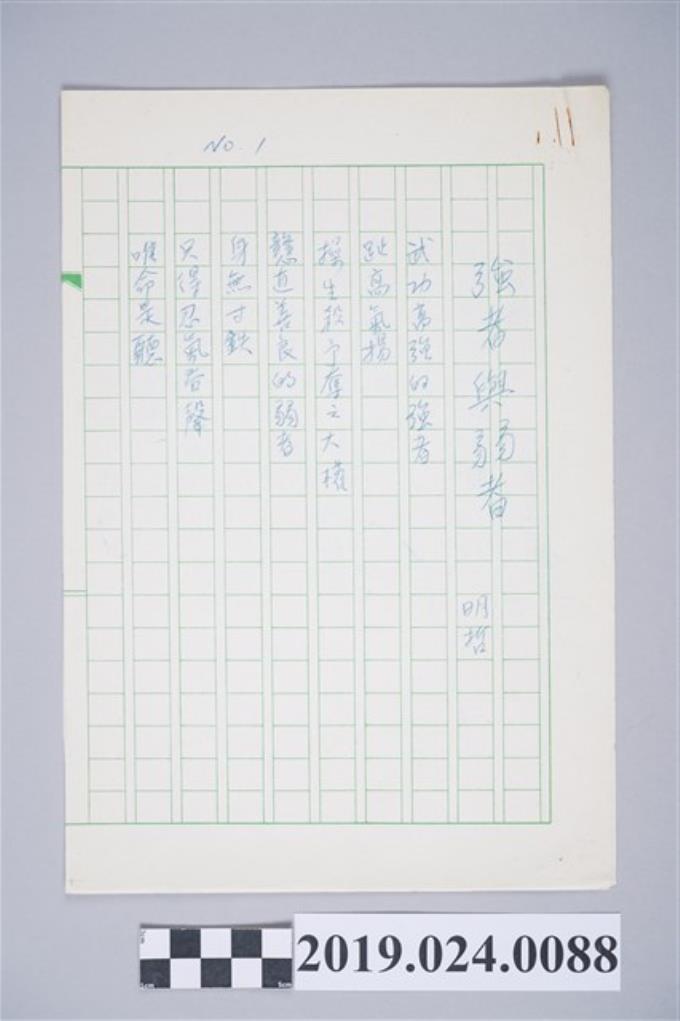 No. 1
強者與弱者
明哲
武功高強的強者
趾高氣揚
操生殺予奪之大權
戇直善良的弱者
身無寸鉄
只得忍氣吞聲
唯命是聽
2019.024.0088